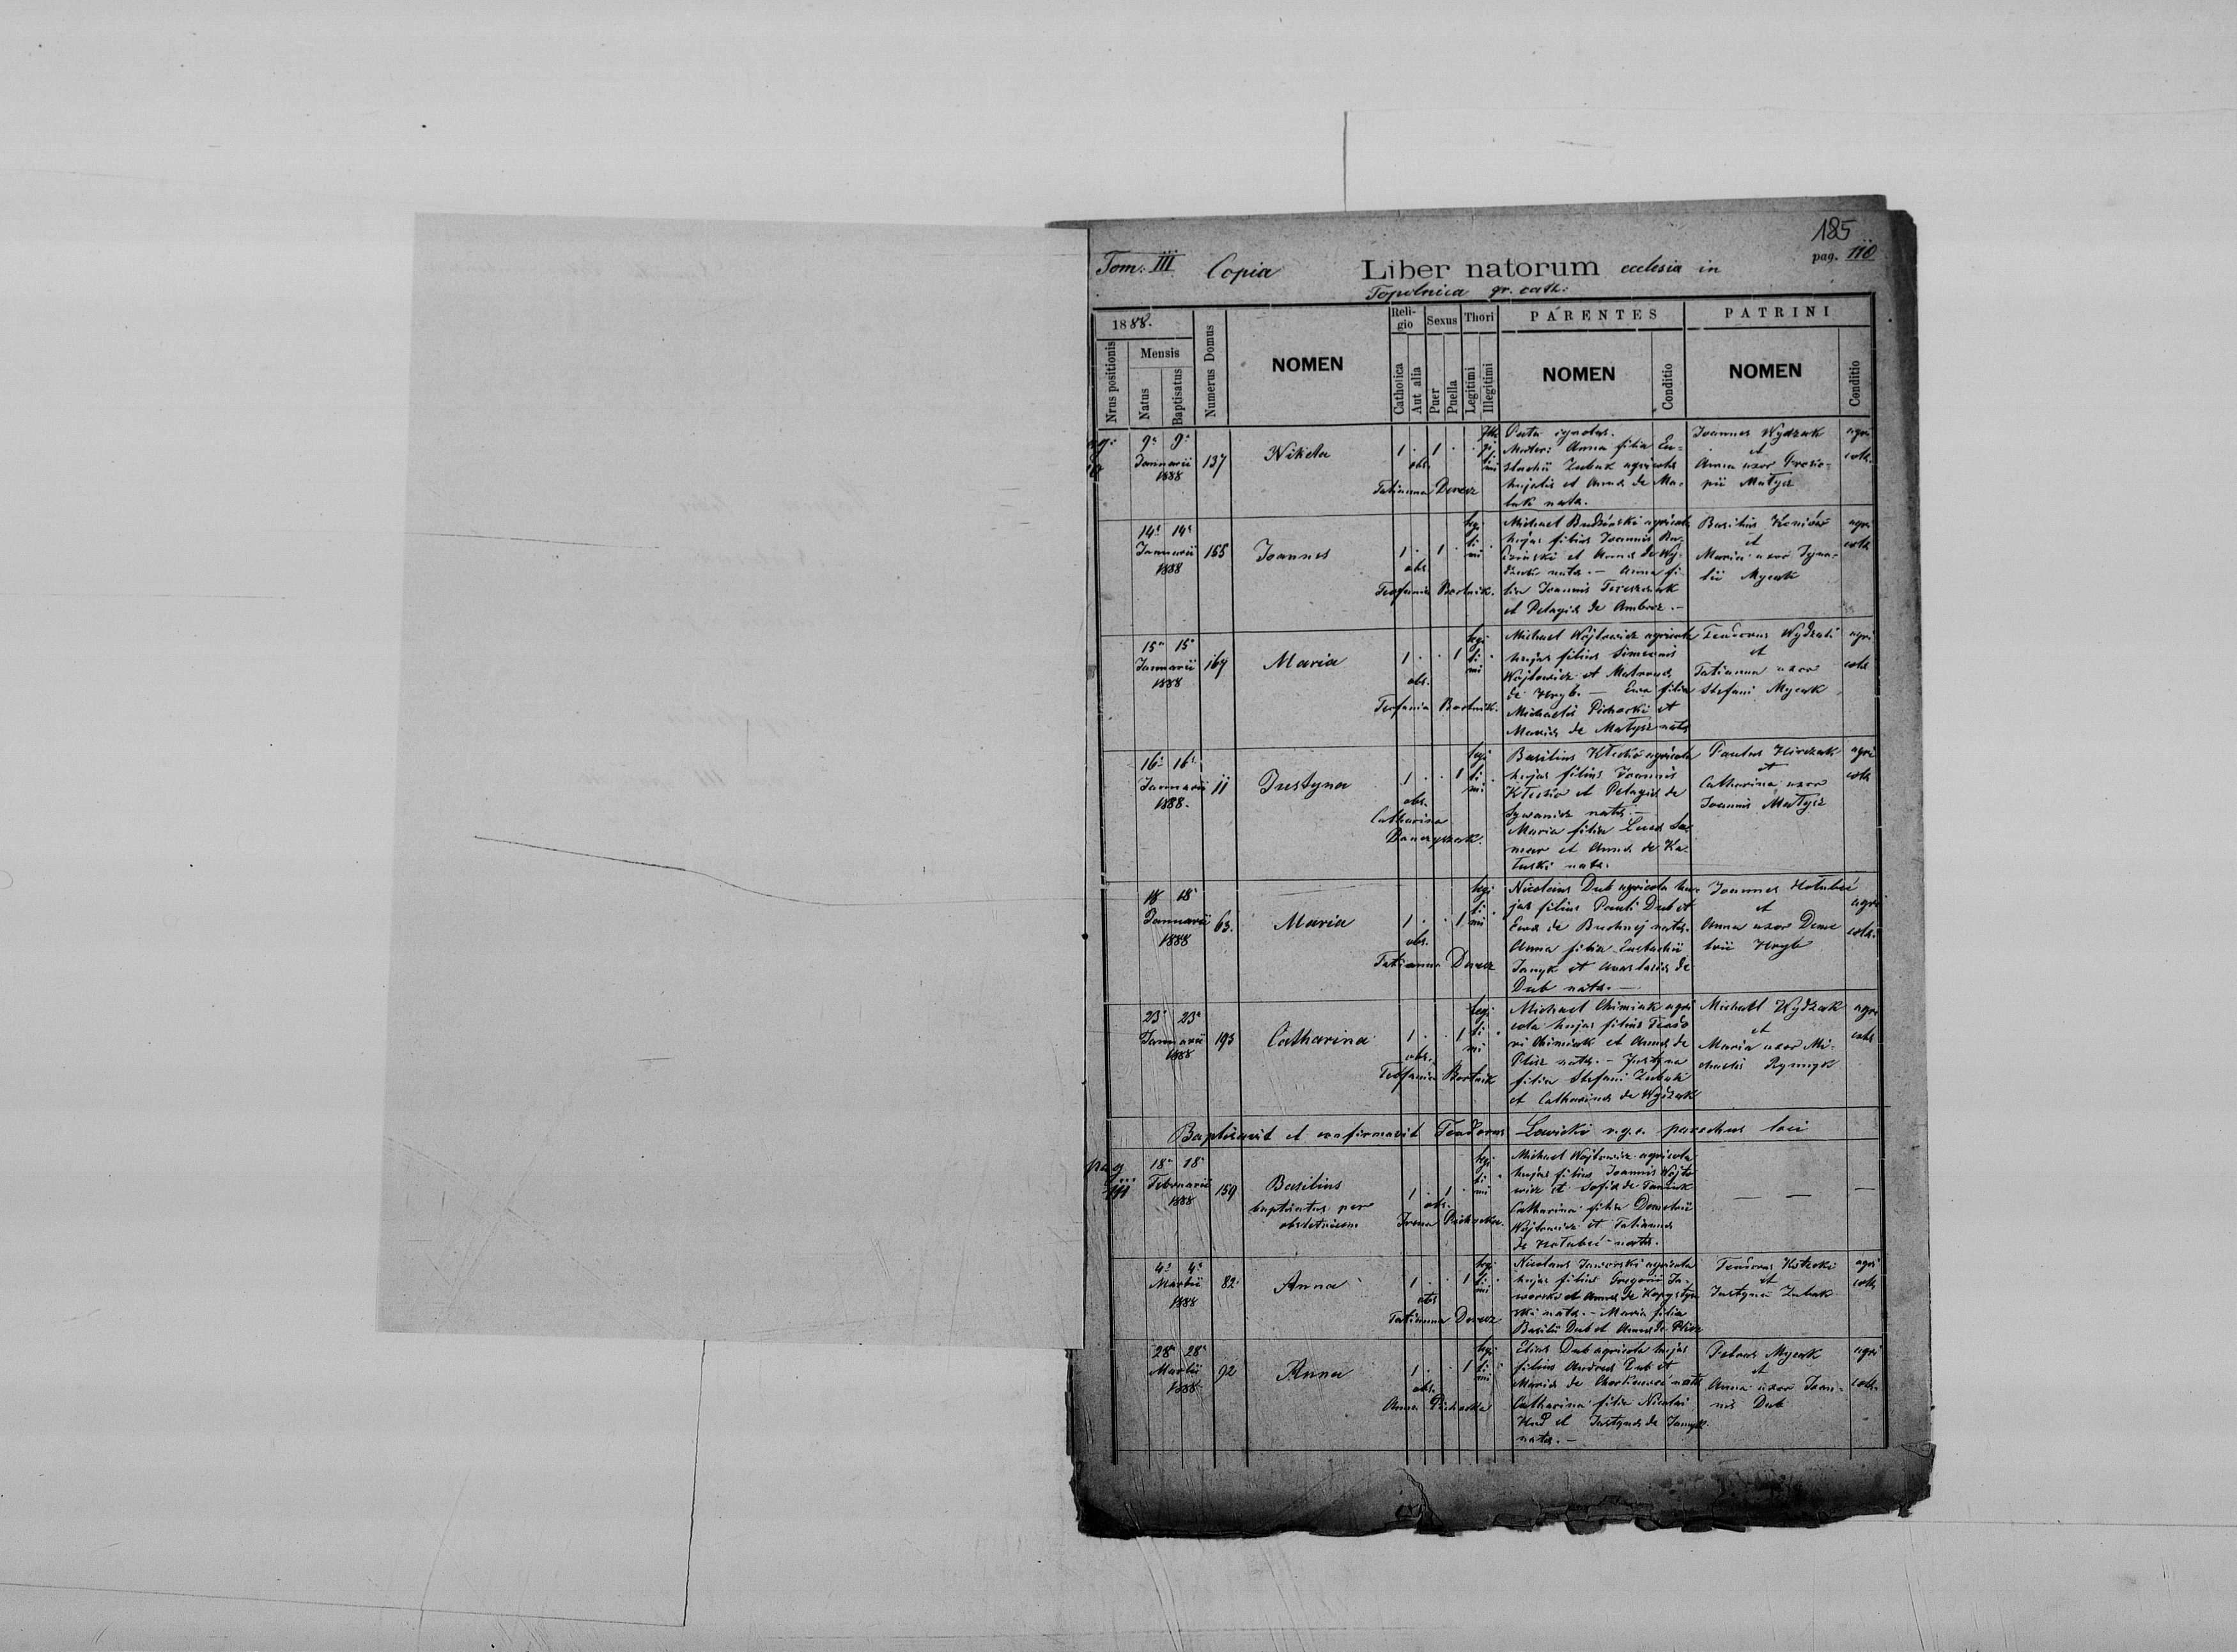 185
Tom: III Copia Liber natorum ecclesia in pag. 110
Topolnica gr. cath:
1888. Numerus Domus NOMEN Religio Sexus Thori PARENTES PATRINI
Nrus positionis Mensis Natus Baptisatus Catholica Aut alia Puer Puella Legitimi Illegitimi NOMEN Conditio NOMEN Conditio
9a 9a
Januarii
1888
137
Nikita
1 . 1 .
obs.
Tatianna Derecz
Pater ignotus.
Mater: Anna filia Eu-
stachii Zubak agricolae
hujatis et Annae de Ma-
tak nata.
Joannes Wydzak
et
Anna uxor Proco-
pii Matysz
agri
colae
14a 14a
Januarii
1888
155
Joannes
1 . 1 .
obs.
Teofania Bortnik.
legi
ti
mi
Michael Budzinski agricola
hujas filius Joannis Bu-
dzinski et Annae de Wy-
dzak nata. — Anna fi-
lia Joannis Tereszczak
et Pelagiae de Ambroz. —
Basilius
et
Maria uxor Igna-
tii Mycak
agri
colae
15a 15a
Januarii
1888
164
Maria
1 . . 1
obs.
Teofania Bortnik.
legi
ti
mi
Michael Wojtowicz agricola
hujas filius Simeonis
Wojtowicz et Matronae
de Hryb. — Eva filia
Michaelis Pichocki et
Mariae de Matysz nata
Teodorus Wydzak
et
Tatianna uxor
Stefani Mycak
agri
colae
16a 16a
Januarii
1888.
11
Justyna
1 . . 1
obs.
Catharina
Danczyszak.
legi
ti
mi
Basilius Kłecko agricola
hujas filius Joannis
Kłecko et Pelagiae de
Sywanicz nata. —
Maria filia Lucae
et Annae de Ka-
nata.
Paulus Hirczak
et
Catharina uxor
Joannis Matysz
agri
colae
18 18a
Januarii
1888
63.
Maria
1 . . 1
obs.
Tatianna Derecz
legi
ti
mi
Nicolaus Dub agricola hu-
jas filius Pauli Dub et
Evae de Buchnij nata.
Anna filia Eustachii
Janyk et Anastasiae de
Dub nata. —
Joannes Hołubec
et
Anna uxor Deme
trii Hryb
agri
colae
23a 23a
Januarii
1888
193
Catharina
1 . . 1
obs.
Teofania Bortnik
legi
ti
mi
Michael Chimiak agri
cola hujas filius Teodo
ri Chimiak et Annae de
Plisz nata. — Justyna
filia Stefani Zubak
et Catharinae de Wydzak
Michael Wydzak
et
Maria uxor Mi-
chaelis Rymyk
agri
colae
Baptisavit et confirmavit Teodorus Lewicki r.g.c. parochus loci
pag
111
18a 18a
Februarii
1888
159
Basilius
baptisatus per
obstetricem
1 . 1 .
obs.
Irena Pichocka.
legi
ti
mi
Michael Wojtowicz agricola
hujas filius Joannis Wojto
wicz et Sofiae de
Catharina filia Demetrii
Wojtowicz et Tatiannae
de Hołubec nata.
— —
—
4a 4a
Martii
1888
82.
Anna
1 . . 1
obs
Tatianna Derecz
legi
ti
mi
Nicolaus Jaworski agricola
hujas filius Gregorii Ja-
worski et Annae de Kopystyn
ski nata. — Maria filia
Basilii Dub et Annae de Plisz
Teodorus Kłecko
et
Justyna Zubak
agri
colae
28a 28a
Martii
1888.
92
Anna
1 . . 1
obs.
Anna Pichocka
legi
ti
mi
Elias Dub agricola hujas
filius Andreae Dub et
Mariae de nata
Catharina filia Nicolai
Hud et Justynae de Janyk
nata. —
Petrus Mycak
et
Anna uxor Joan-
nis Dub
agri
colae